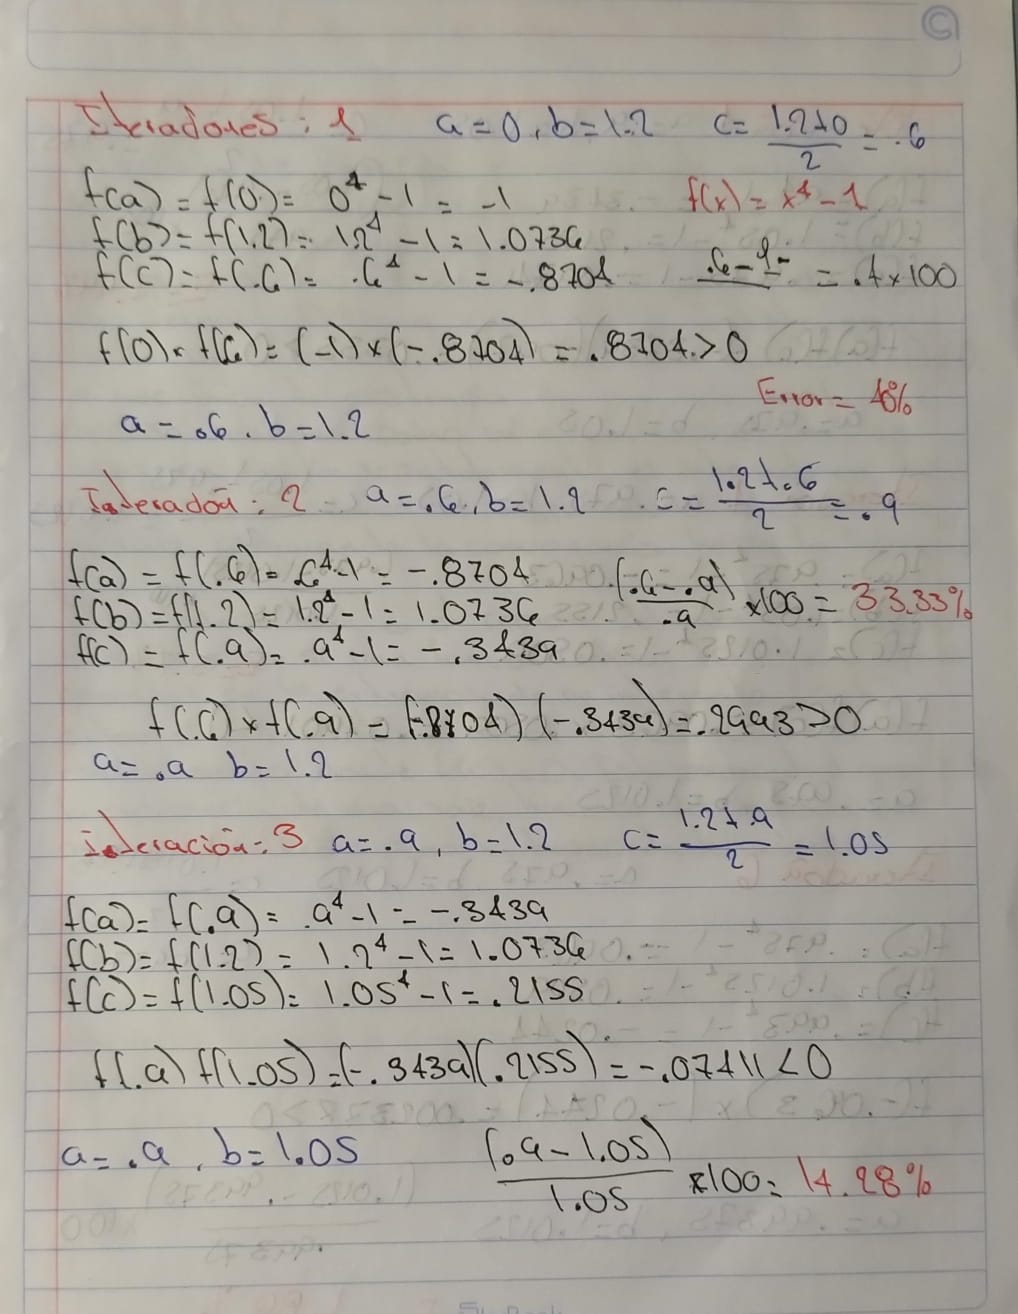 Iteraciones : 1 a = 0 , b = 1.2 c = (1.2+0)/2 = .6
f(a) = f(0) = 0^4 - 1 = -1 f(x) = x^4 - 1
f(b) = f(1.2) = 1.2^4 - 1 = 1.0736
f(c) = f(.6) = .6^4 - 1 = -.8704 = .4 x 100
f(0) x f(6) = (-1) x (-.8704) = .8704 > 0
Error = 40%
a = .6 , b = 1.2
: 2 a = .6 , b = 1.2 c = (1.2+.6)/2 = .9
f(a) = f(.6) = .6^4 - 1 = -.8704 (.6 - .9)/.9 x100 = 33.33%
f(b) = f(1.2) = 1.2^4 - 1 = 1.0736
f(c) = f(.9) = .9^4 - 1 = -.3439
f(.6) x f(.9) = (-.8704) (-.3439) = .2993 > 0
a = .9 b = 1.2
Iteración : 3 a = .9 , b = 1.2 c = (1.2+.9)/2 = 1.05
f(a) = f(.9) = .9^4 - 1 = -.3439
f(b) = f(1.2) = 1.2^4 - 1 = 1.0736
f(c) = f(1.05) = 1.05^4 - 1 = .2155
f(.9) f(1.05) = (-.3439)(.2155) = -.07411 < 0
a = .9 , b = 1.05 (.9 - 1.05)/1.05 x100 = 14.28%